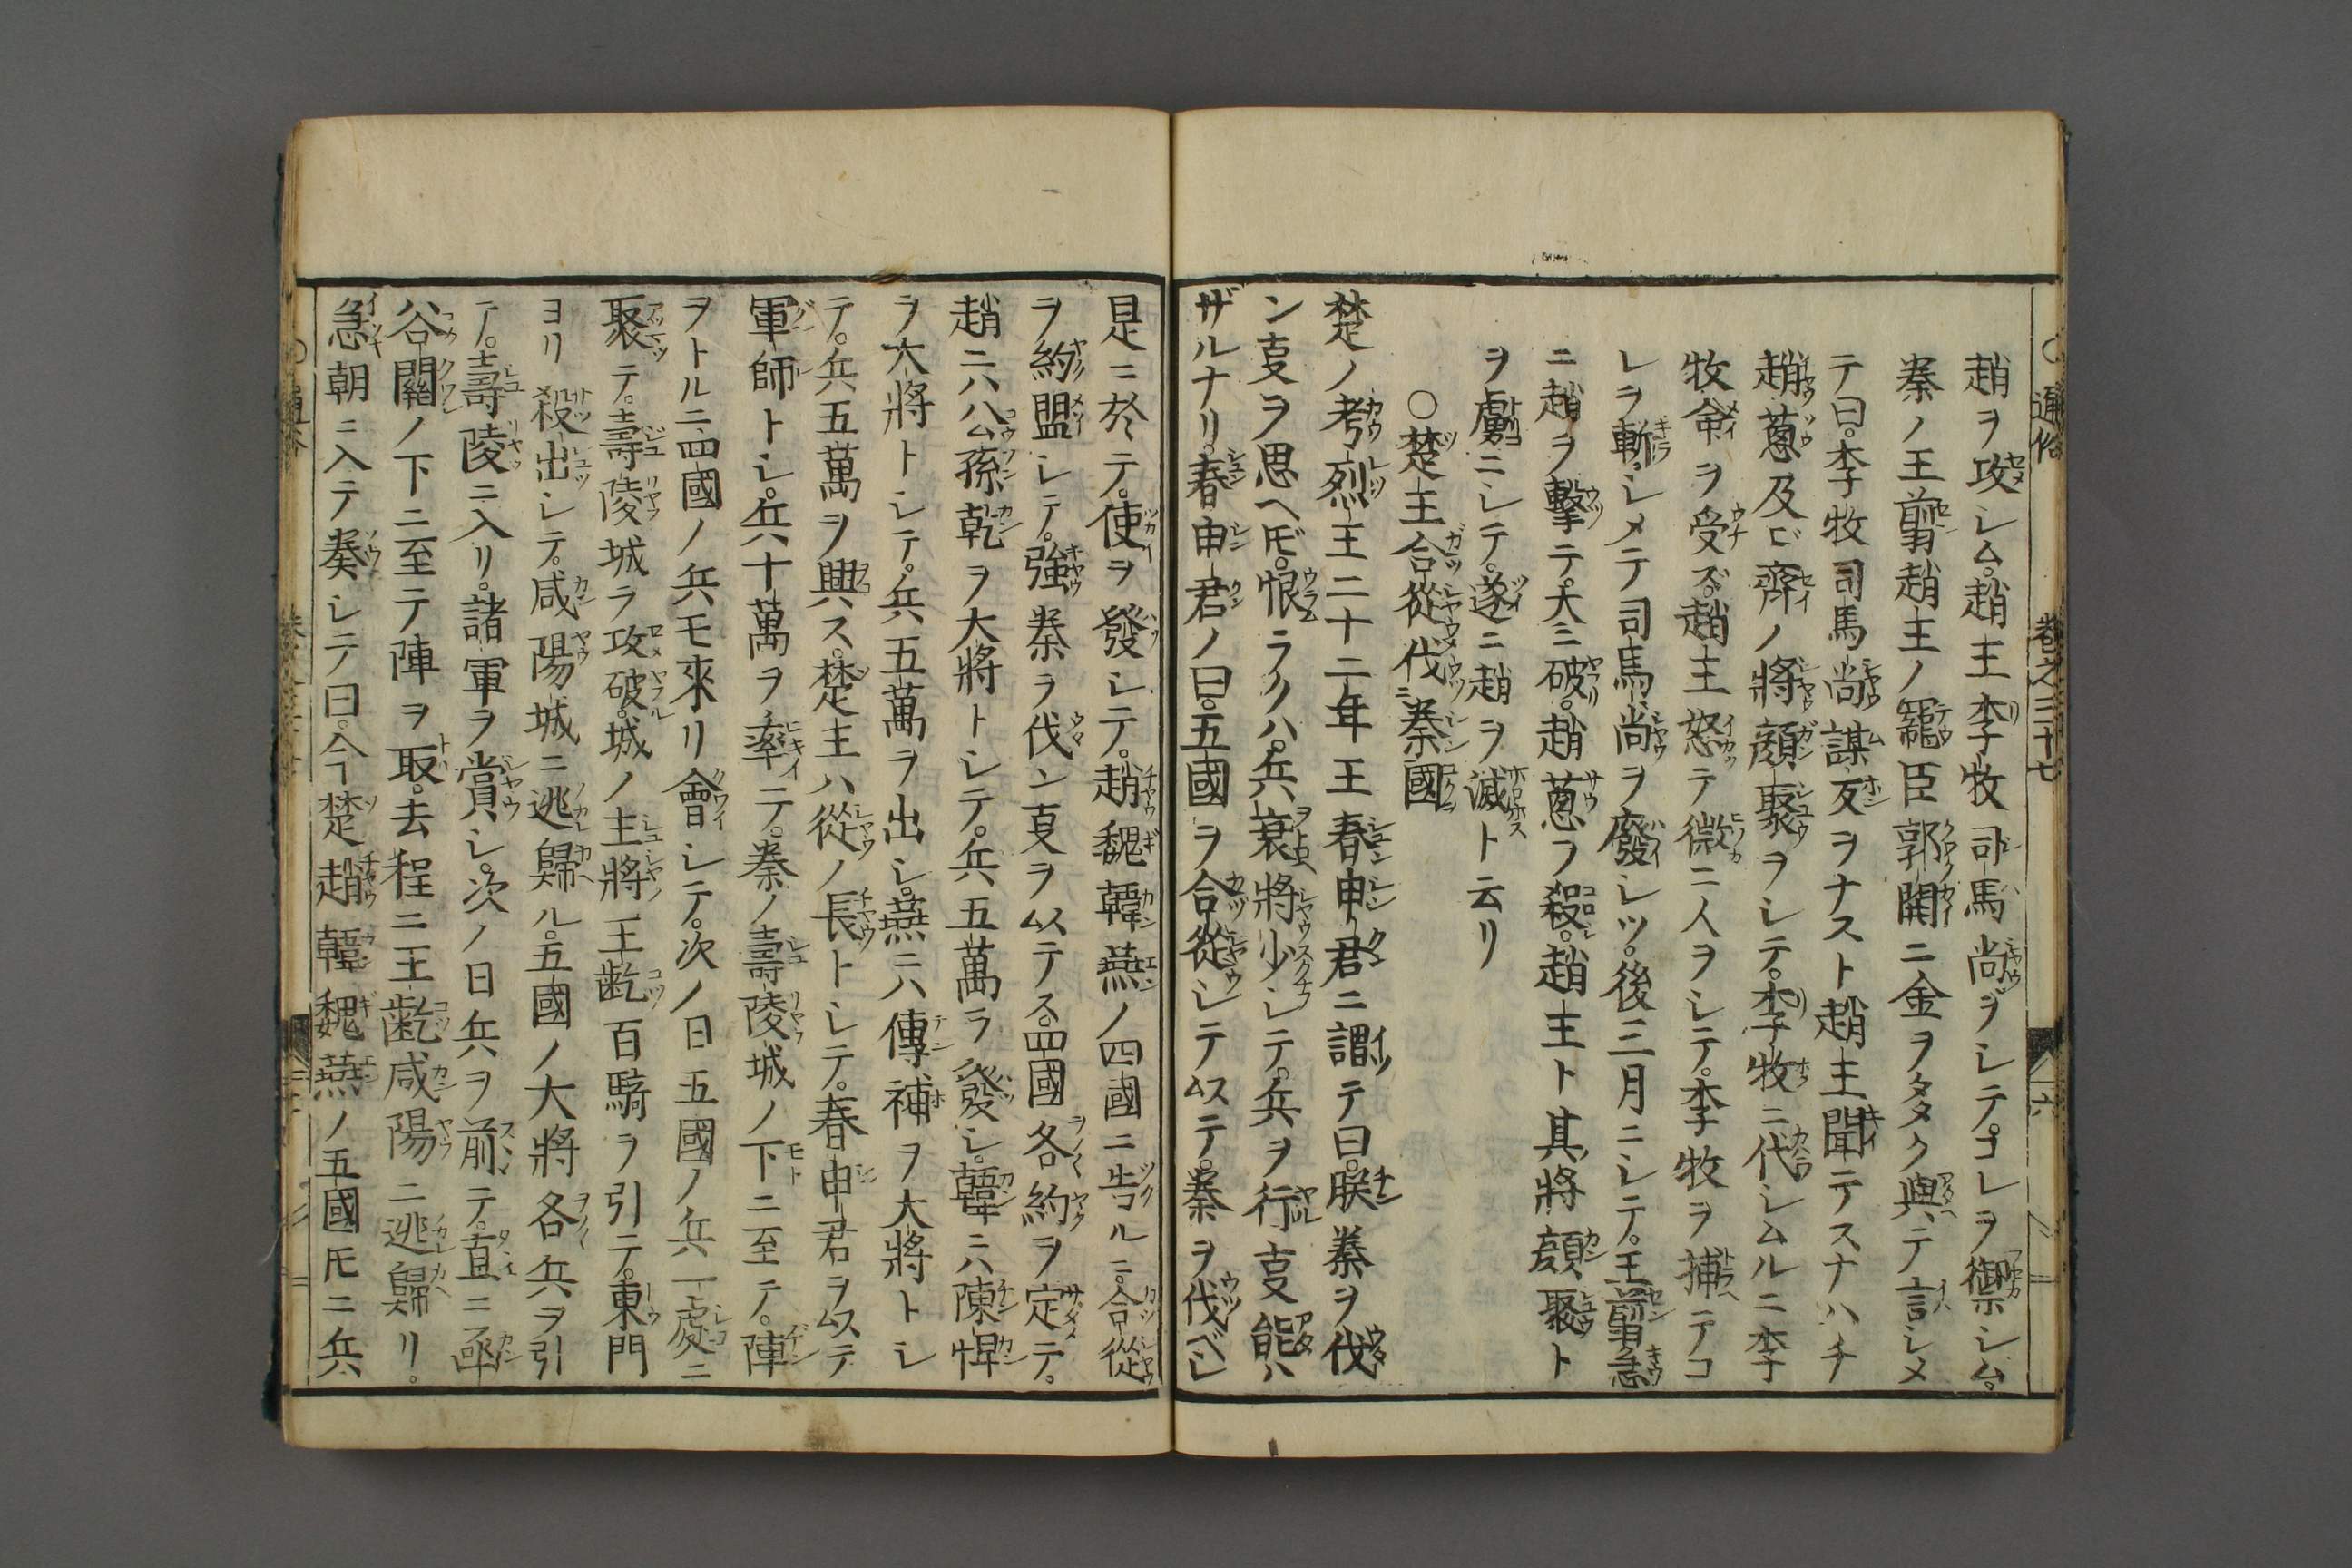 趙ヲ攻シム。趙王李牧司馬尚ヲシテコレヲ禦シム。
秦ノ王翦趙王ノ寵臣郭開ニ金ヲタタク與テ言シメ
テ曰。李牧司馬尚謀反ヲナスト趙王聞テスナハチ
趙蔥及ビ齊ノ將顔聚ヲシテ。李牧ニ代シムルニ李
牧命ヲ受ズ。趙王怒テ微ニ人ヲシテ。李牧ヲ捕テコ
レヲ斬シメテ司馬尚ヲ廢シツ。後三月ニシテ。王翦急
ニ趙ヲ擊テ。大ニ破。趙蔥ヲ殺。趙王ト其將顔聚ト
ヲ虜ニシテ。遂ニ趙ヲ滅ト云リ
○楚王合從伐ニ秦國
楚ノ考烈王二十二年王春申君ニ謂テ曰。朕秦ヲ伐
ン事ヲ思ヘ𪜈。恨ラクハ。兵衰將少シテ。兵ヲ行事能ハ
ザルナリ。春申君ノ曰。五國ヲ合從シテ以テ。秦ヲ伐ベシ
是ニ於テ。使ヲ發シテ。趙魏韓燕ノ四國ニ告ルニ。合從
ヲ約盟シテ。強秦ヲ伐ン事ヲ以テス。四國各約ヲ定テ。
趙ニハ公孫乾ヲ大將トシテ。兵五萬ヲ發シ。韓ニハ陳悍
ヲ大將トシテ。兵五萬ヲ出シ。燕ニハ傳補ヲ大將トシ
テ。兵五萬ヲ興ス。楚王ハ從ノ長トシテ。春申君ヲ以テ
軍師トシ。兵十萬ヲ率ニテ。秦ノ壽陵城ノ下ニ至テ。陣
ヲトルニ四國ノ兵モ來リ會シテ。次ノ日五國ノ兵一處ニ
聚テ。壽陵城ヲ攻破。城ノ主將王齕百騎ヲ引テ。東門
ヨリ殺出シテ。咸陽城ニ逃歸ル。五國ノ大將各兵ヲ引
テ。壽陵ニ入リ。諸軍ヲ賞シ。次ノ日兵ヲ前テ。直ニ函
谷關ノ下ニ至テ陣ヲ取。去程ニ王齕咸陽ニ逃歸リ。
急朝ニ入テ奏シテ曰。今楚趙韓魏燕ノ五國𪜈ニ兵
○通俗　卷之三十七　六